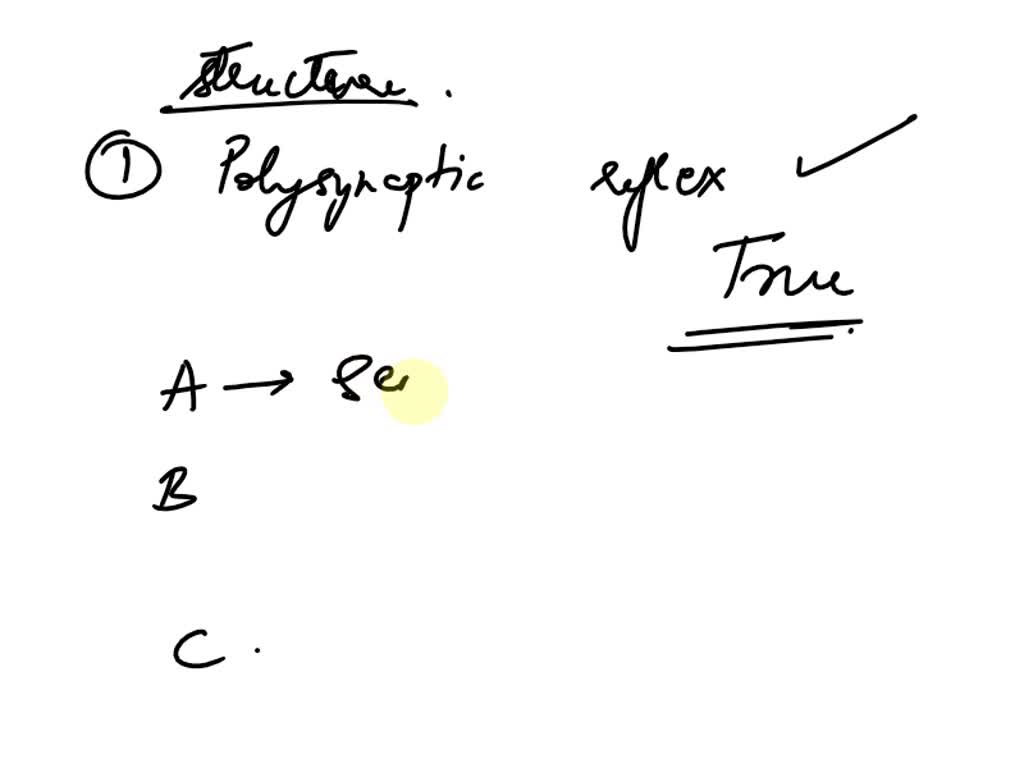 structure.
① Polysynaptic reflex ✓
True
A → Se
B
C .